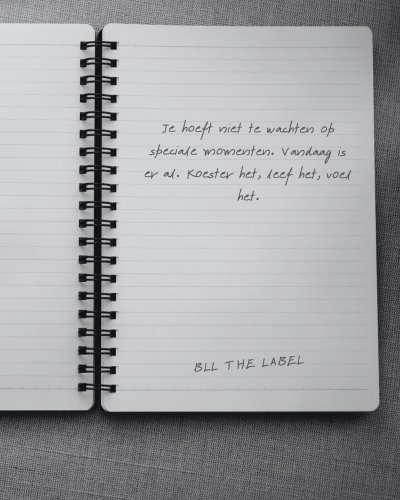 Je hoeft niet te wachten op
speciale momenten. Vandaag is
er al. Koester het, leef het, voel
het.
BLL THE LABEL